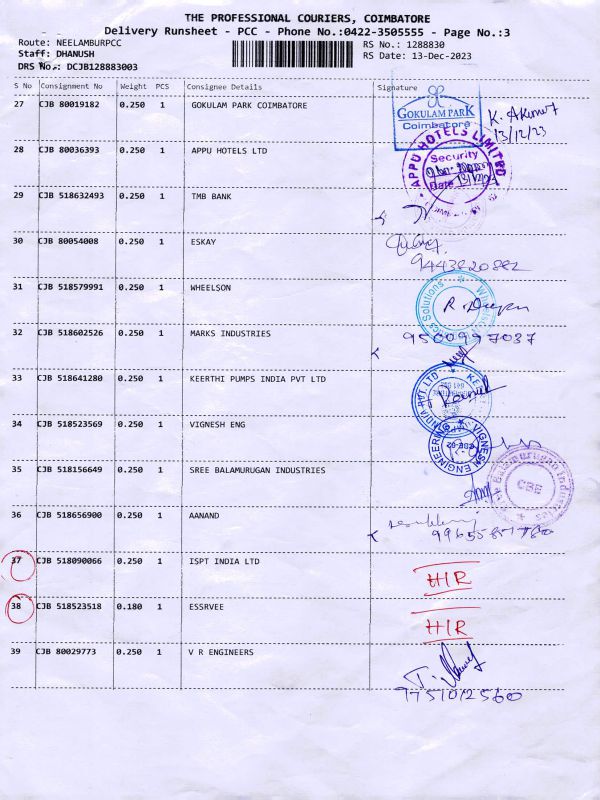 THE PROFESSIONAL COURIERS, COIMBATORE
Delivery Runsheet - PCC - Phone No.:0422-3505555 - Page No.:3
Route: NEELAMBURPCC RS No.: 1288830
Staff: DHANUSH RS Date: 13-Dec-2023
DRS No.: DCJB128883003
S No Consignment No Weight PCS Consignee Details Signature
27 CJB 80019182 0.250 1 GOKULAM PARK COIMBATORE
GOKULAM PARK
Coimbatore
13/12/23
28 CJB 80036393 0.250 1 APPU HOTELS LTD
APPU HOTELS LIMITED
Security
Date
29 CJB 518632493 0.250 1 TMB BANK
30 CJB 80054008 0.250 1 ESKAY
9443820882
31 CJB 518579991 0.250 1 WHEELSON
Solutions
32 CJB 518602526 0.250 1 MARKS INDUSTRIES
9500997037
33 CJB 518641280 0.250 1 KEERTHI PUMPS INDIA PVT LTD
INDIA PVT LTD
34 CJB 518523569 0.250 1 VIGNESH ENG
VIGNESH ENGINEERING
35 CJB 518156649 0.250 1 SREE BALAMURUGAN INDUSTRIES
Balamurugan Industries
CBE
36 CJB 518656900 0.250 1 AANAND
37 CJB 518090066 0.250 1 ISPT INDIA LTD
HIR
38 CJB 518523518 0.180 1 ESSRVEE
HIR
39 CJB 80029773 0.250 1 V R ENGINEERS